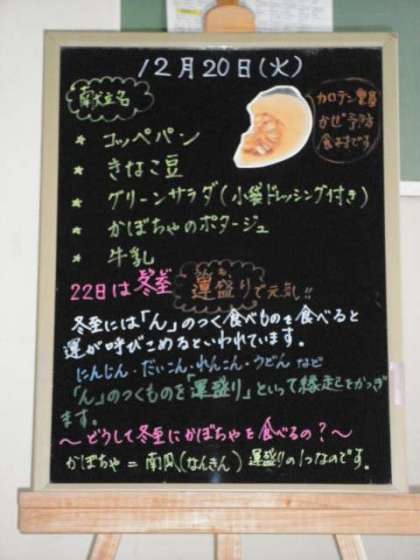 12月20日(火)
献立名
カロテン豊富
かぜ予防
食材です
★ コッペパン
★ きなこ豆
★ グリーンサラダ(小袋ドレッシング付き)
★ かぼちゃのポタージュ
★ 牛乳
22日は冬至 運盛りで元気!!
冬至には「ん」のつく食べものを食べると
運が呼びこめるといわれています。
にんじん・だいこん・れんこん・うどん など
「ん」のつくものを「運盛り」といって縁起をかつぎ
ます。
〜どうして冬至にかぼちゃを食べるの?〜
かぼちゃ=南瓜(なんきん) 運盛りの1つなのです。